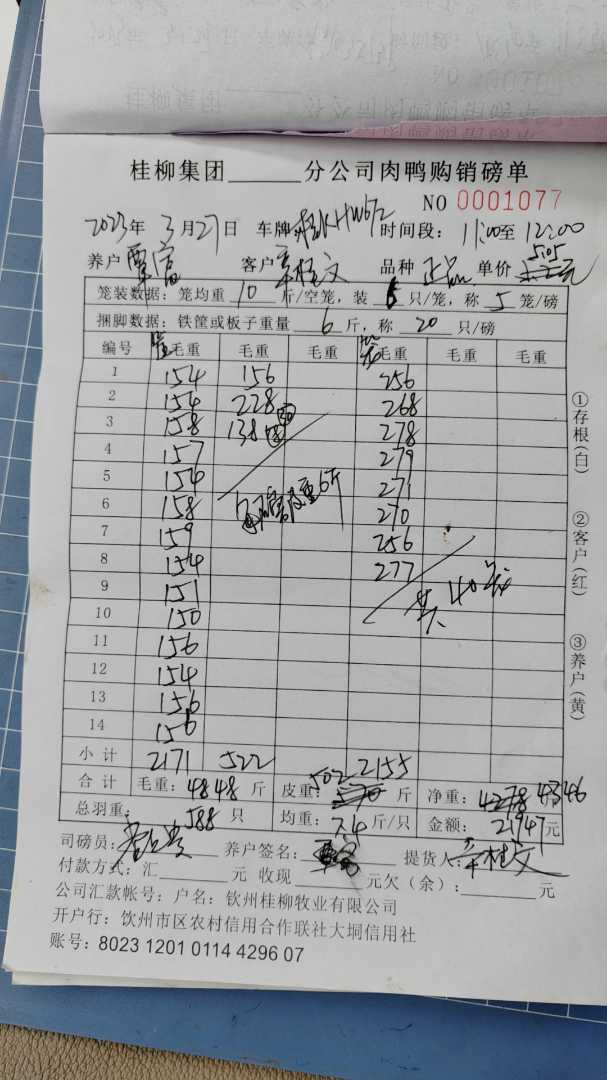 桂柳集团______分公司肉鸭购销磅单
NO 0001077
2023年 3月27日 车牌 HW672 时间段: 11:00至 12:00
养户 覃富 客户 韦桂文 品种 正品 单价 5.05
笼装数据: 笼均重 10 斤/空笼, 装 只/笼, 称 5 笼/磅
捆脚数据: 铁筐或板子重量 6 斤, 称 20 只/磅
编号 毛重 毛重 毛重 笼毛重 毛重 毛重
1 154 156 256
2 154 228 268
3 158 138 278
4 157 279
5 154 271
6 158 每框皮重6斤 270
7 159 256
8 154 277
9 151 共40笼
10 150
11 156
12 154
13 156
14 156
小计 2171 522 2155
合计 毛重: 4848 斤 皮重: 502 斤 净重: 4278 4346
总羽重: 588 只 均重: 7.4 斤/只 金额: 21947元
司磅员: 养户签名: 覃富 提货人: 韦桂文
付款方式: 汇______元 收现______元欠(余):______元
公司汇款帐号: 户名: 钦州桂柳牧业有限公司
开户行: 饮州市区农村信用合作联社大垌信用社
账号: 8023 1201 0114 4296 07
①存根(白)
②客户(红)
③养户(黄)